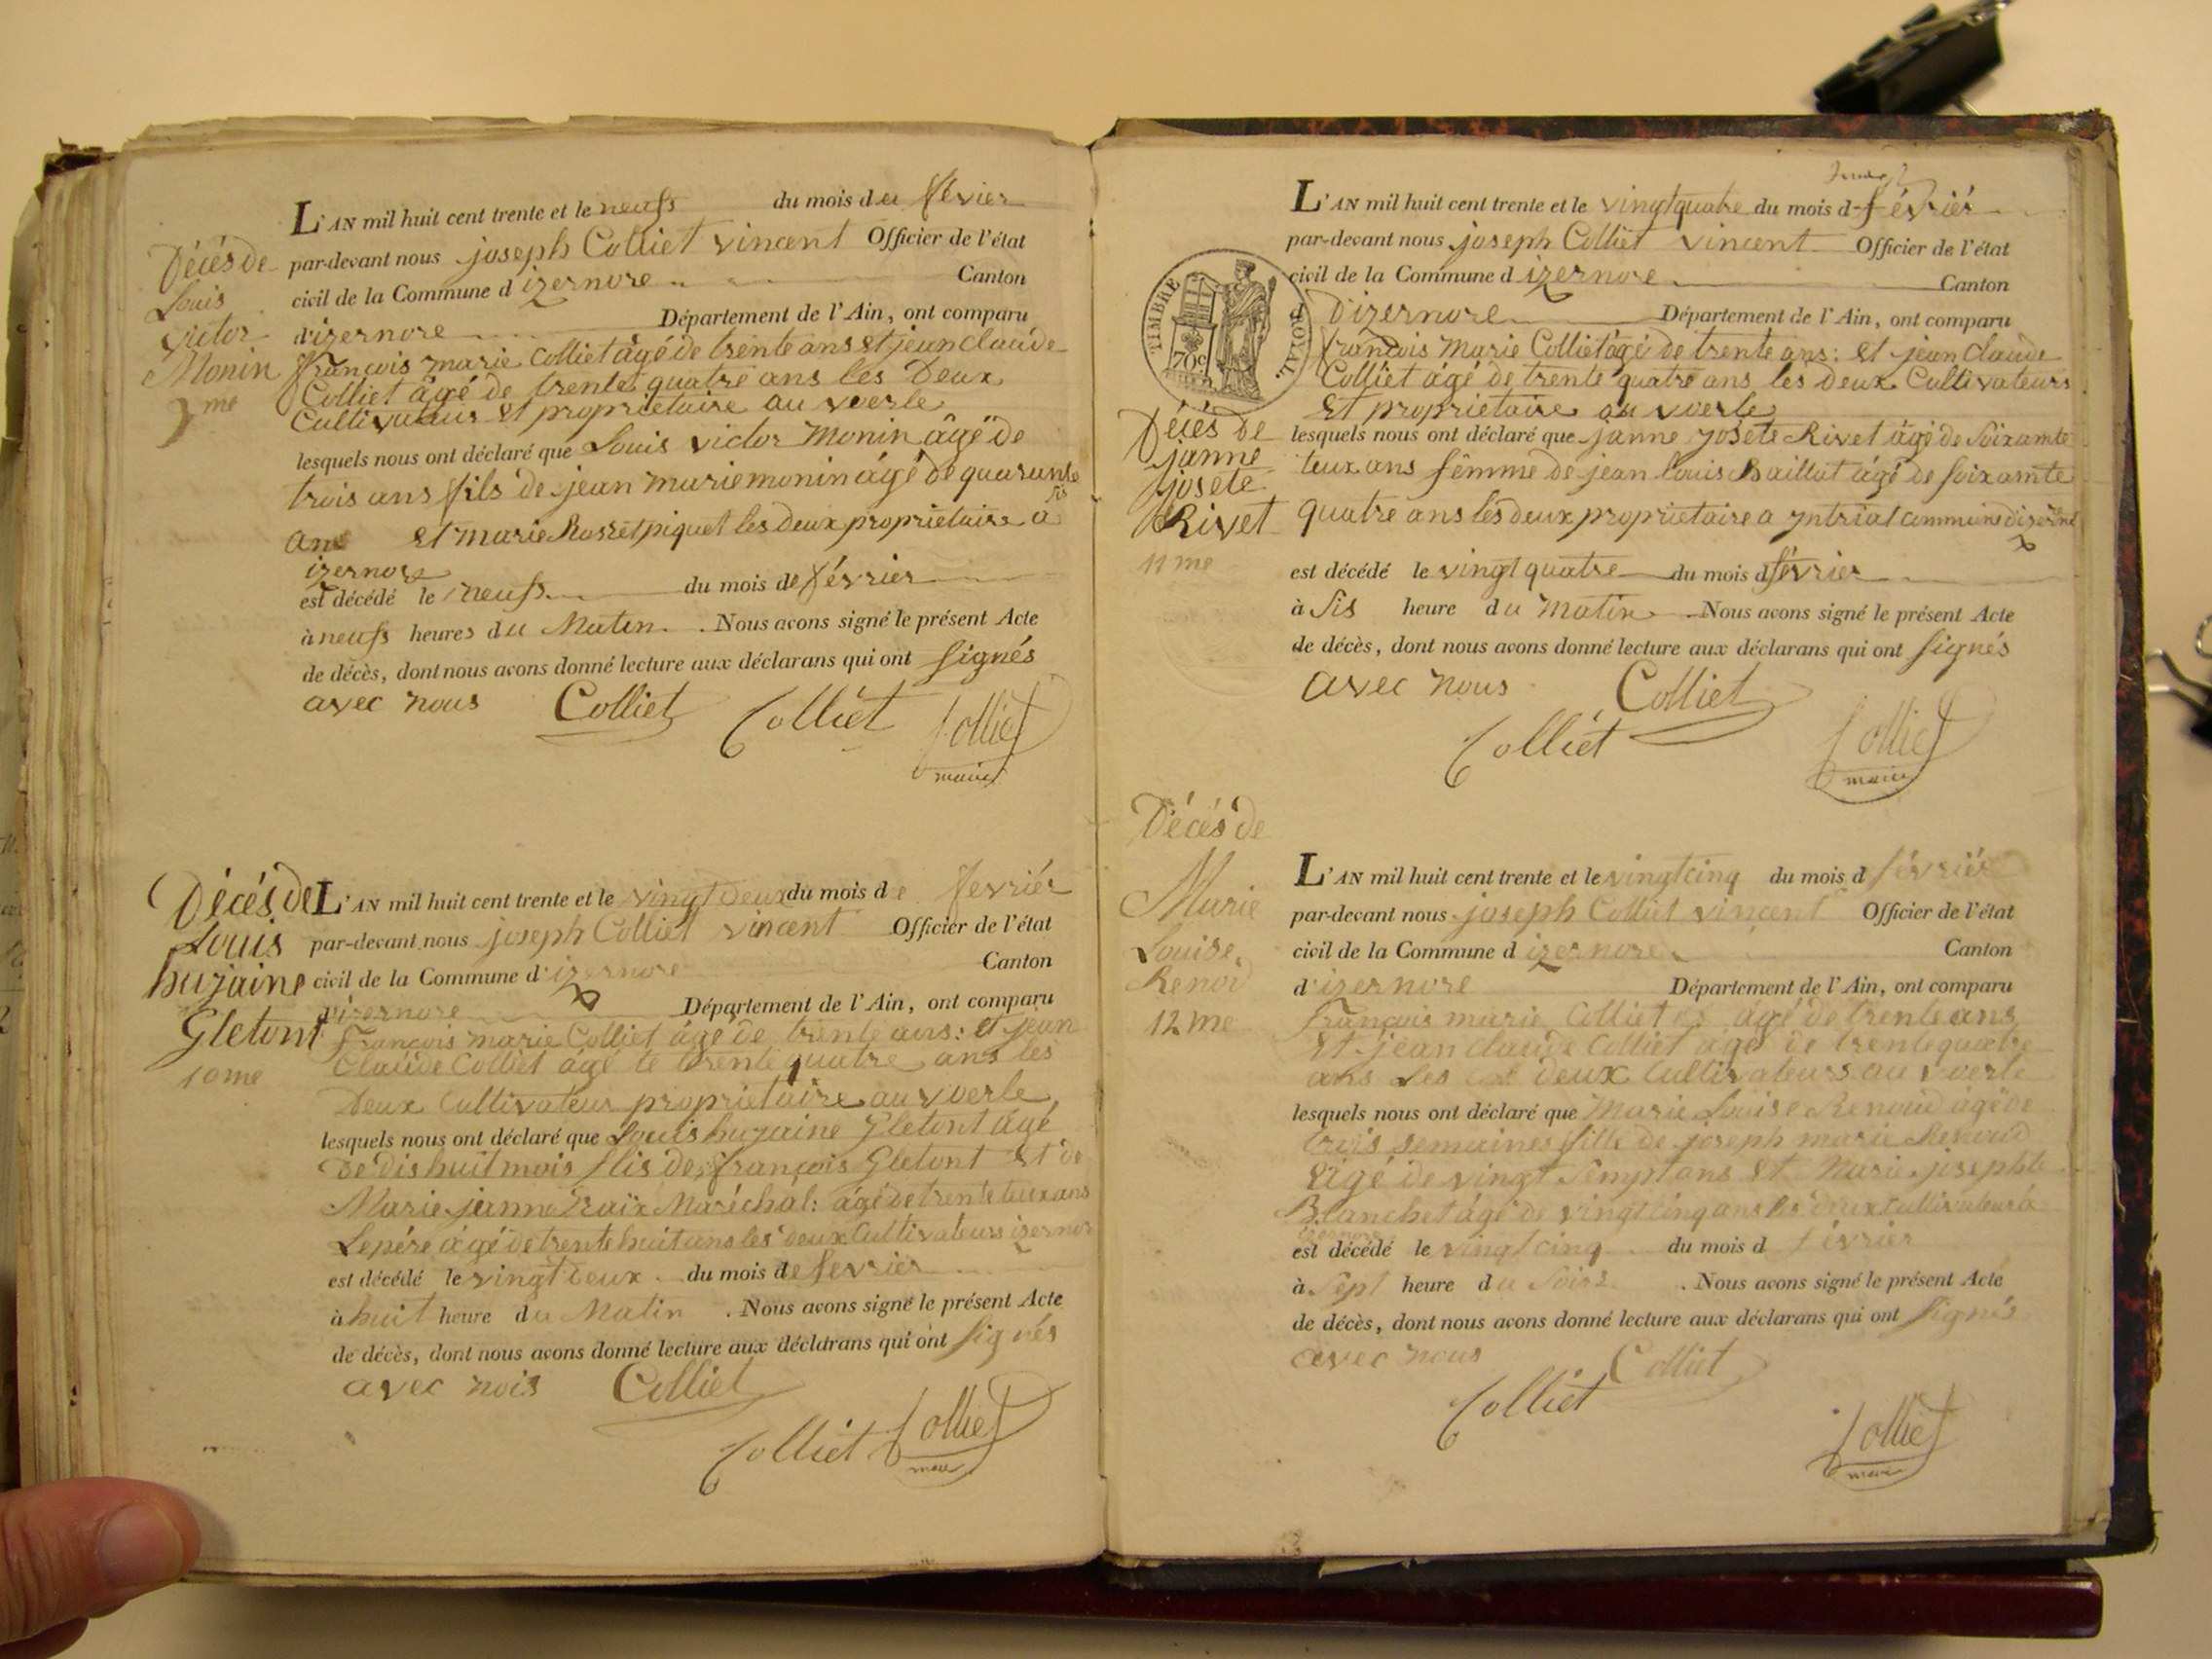 L'AN mil huit cent trente et le neufs du mois d eu févier
par-devant nous joseph Colliet vincent Officier de l'état
civil de la Commune d izernore Canton
d'izernore Département de l'Ain, ont comparu
françois marie Colliet âgé de trente ans et jean claude
Colliet âgé de trente quatre ans les Deux
Cultivateur et propriétaire au voerle
lesquels nous ont déclaré que Louis victor Monin âgé de
trois ans fils de jean marie monin âgé de quarante
sis
ans et marie Rosset piquet les deux propriétaire a
izernore
est décédé le neufs du mois de février
à neufs heures du Matin. Nous avons signé le présent Acte
de décès, dont nous avons donné lecture aux déclarans qui ont signés
avec nous Colliet Colliet Colliet
maire
Décés de
Louis
victor
Monin
9me
L'AN mil huit cent trente et le vingt deux du mois de fevriér
par-devant nous joseph Colliet vincent Officier de l'état
civil de la Commune d'izernore Canton
d'izernore Département de l'Ain, ont comparu
François marie Colliet âgé de trente ans: et jean
Claude Colliet âgé te trente quatre ans les
Deux Cultivateur propriétaire au voerle
lesquels nous ont déclaré que Louis hujaine Gletont âgé
De dis huit mois flis de françois Gletont Et de
Marie janne Maréchal: âgé de trente teux ans
Le père âgé de trente huit ans les deux Cultivateurs izernor
est décédé le vingt deux du mois de fevrier
à huit heure du Matin. Nous avons signé le présent Acte
de décès, dont nous avons donné lecture aux déclarans qui ont signés
avec nois Colliet
Colliet Colliet
maire
Décés de
Louis
hujaine
Gletont
10me
L'AN mil huit cent trente et le vingt quatre du mois d févriér
par-devant nous joseph Colliet vincent Officier de l'état
civil de la Commune d izernore Canton
D'izernore Département de l'Ain, ont comparu
françois Marie Colliet âgé de trente ans: et jean claude
Colliet âgé de trente quatre ans les deux Cultivateurs
Et propriétaire au voerle
lesquels nous ont déclaré que janne josete Rivet âgé de soixante
teux ans fémme de jean louis Baillat âgé de soixante
quatre ans les deux propriétaire a yntriat commune dizerne
est décédé le vingt quatre du mois d février
à sis heure du Matin. Nous avons signé le présent Acte
de décès, dont nous avons donné lecture aux déclarans qui ont signés
avec nous Colliet
Colliet Colliet
maire
TIMBRE ROYAL.
70c.
Décés De
janne
josete
Rivet
11me
L'AN mil huit cent trente et le vingt cinq du mois d févriér
par-devant nous joseph Colliet vincent Officier de l'état
civil de la Commune d izernore Canton
d'izernore Département de l'Ain, ont comparu
François marie Colliet âgé de trente ans
Et jean claude Colliet âgé de trente quatre
ans Les deux Cultivateurs au voerle
lesquels nous ont déclaré que Marie Louise Renoud âgé de
trois semaines fille de joseph marie Renoud
âgé de vingt sempt ans et Marie josephte
Blanchet âgé de vingt cinq ans les deux cultivateur à
izernore
est décédé le vingt cinq du mois d février
à sept heure du soir. Nous avons signé le présent Acte
de décès, dont nous avons donné lecture aux déclarans qui ont signés
avec nous Colliet
Colliet Colliet
maire
Décés de
Marie
Louise
Renod
12me